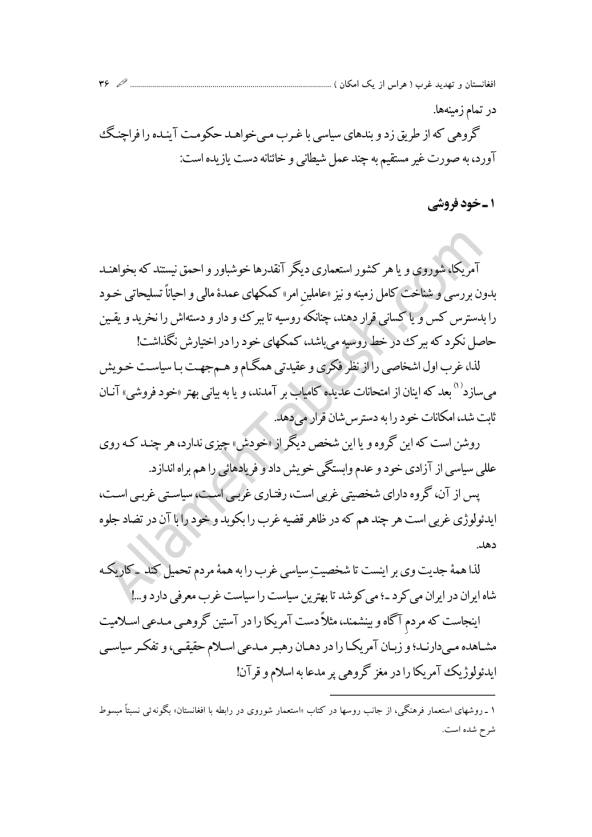 افغانستان و تهدید غرب ( هراس از یک امکان ) ........................................................................................ ۳۶
در تمام زمینه‌ها.
گروهی که از طریق زد و بندهای سیاسی با غرب می‌خواهد حکومت آینده را فراچنگ
آورد، به صورت غیر مستقیم به چند عمل شیطانی و خائنانه دست یازیده است:
۱ ـ خود فروشی
آمریکا، شوروی و یا هر کشور استعماری دیگر آنقدرها خوشباور و احمق نیستند که بخواهند
بدون بررسی و شناخت کامل زمینه و نیز «عاملینِ امر» کمکهای عمدهٔ مالی و احیاناً تسلیحاتی خود
را بدسترس کس و یا کسانی قرار دهند، چنانکه روسیه تا ببرک و دار و دسته‌اش را نخرید و یقین
حاصل نکرد که ببرک در خط روسیه می‌باشد، کمکهای خود را در اختیارش نگذاشت!
لذا، غرب اول اشخاصی را از نظر فکری و عقیدتی همگام و هم‌جهت با سیاست خویش
می‌سازد(۱) بعد که اینان از امتحانات عدیده کامیاب بر آمدند، و یا به بیانی بهتر «خود فروشی» آنان
ثابت شد، امکانات خود را به دسترس‌شان قرار می‌دهد.
روشن است که این گروه و یا این شخص دیگر از «خودش» چیزی ندارد، هر چند که روی
عللی سیاسی از آزادی خود و عدم وابستگی خویش داد و فریادهائی را هم براه اندازد.
پس از آن، گروه دارای شخصیتی غربی است، رفتاری غربی است، سیاستی غربی است،
ایدئولوژی غربی است هر چند هم که در ظاهر قضیه غرب را بکوبد و خود را با آن در تضاد جلوه
دهد.
لذا همهٔ جدیت وی بر اینست تا شخصیتِ سیاسی غرب را به همهٔ مردم تحمیل کند ـ کاریکه
شاه ایران در ایران می‌کرد ـ؛ می‌کوشد تا بهترین سیاست را سیاست غرب معرفی دارد و...!
اینجاست که مردمِ آگاه و بینشمند، مثلاً دست آمریکا را در آستین گروهی مدعی اسلامیت
مشاهده می‌دارند؛ و زبان آمریکا را در دهان رهبر مدعی اسلام حقیقی، و تفکر سیاسی
ایدئولوژیک آمریکا را در مغز گروهی پر مدعا به اسلام و قرآن!
۱ ـ روشهای استعمار فرهنگی، از جانب روسها در کتاب «استعمار شوروی در رابطه با افغانستان» بگونه‌ئی نسبتاً مبسوط
شرح شده است.
AllamehTabesh.com